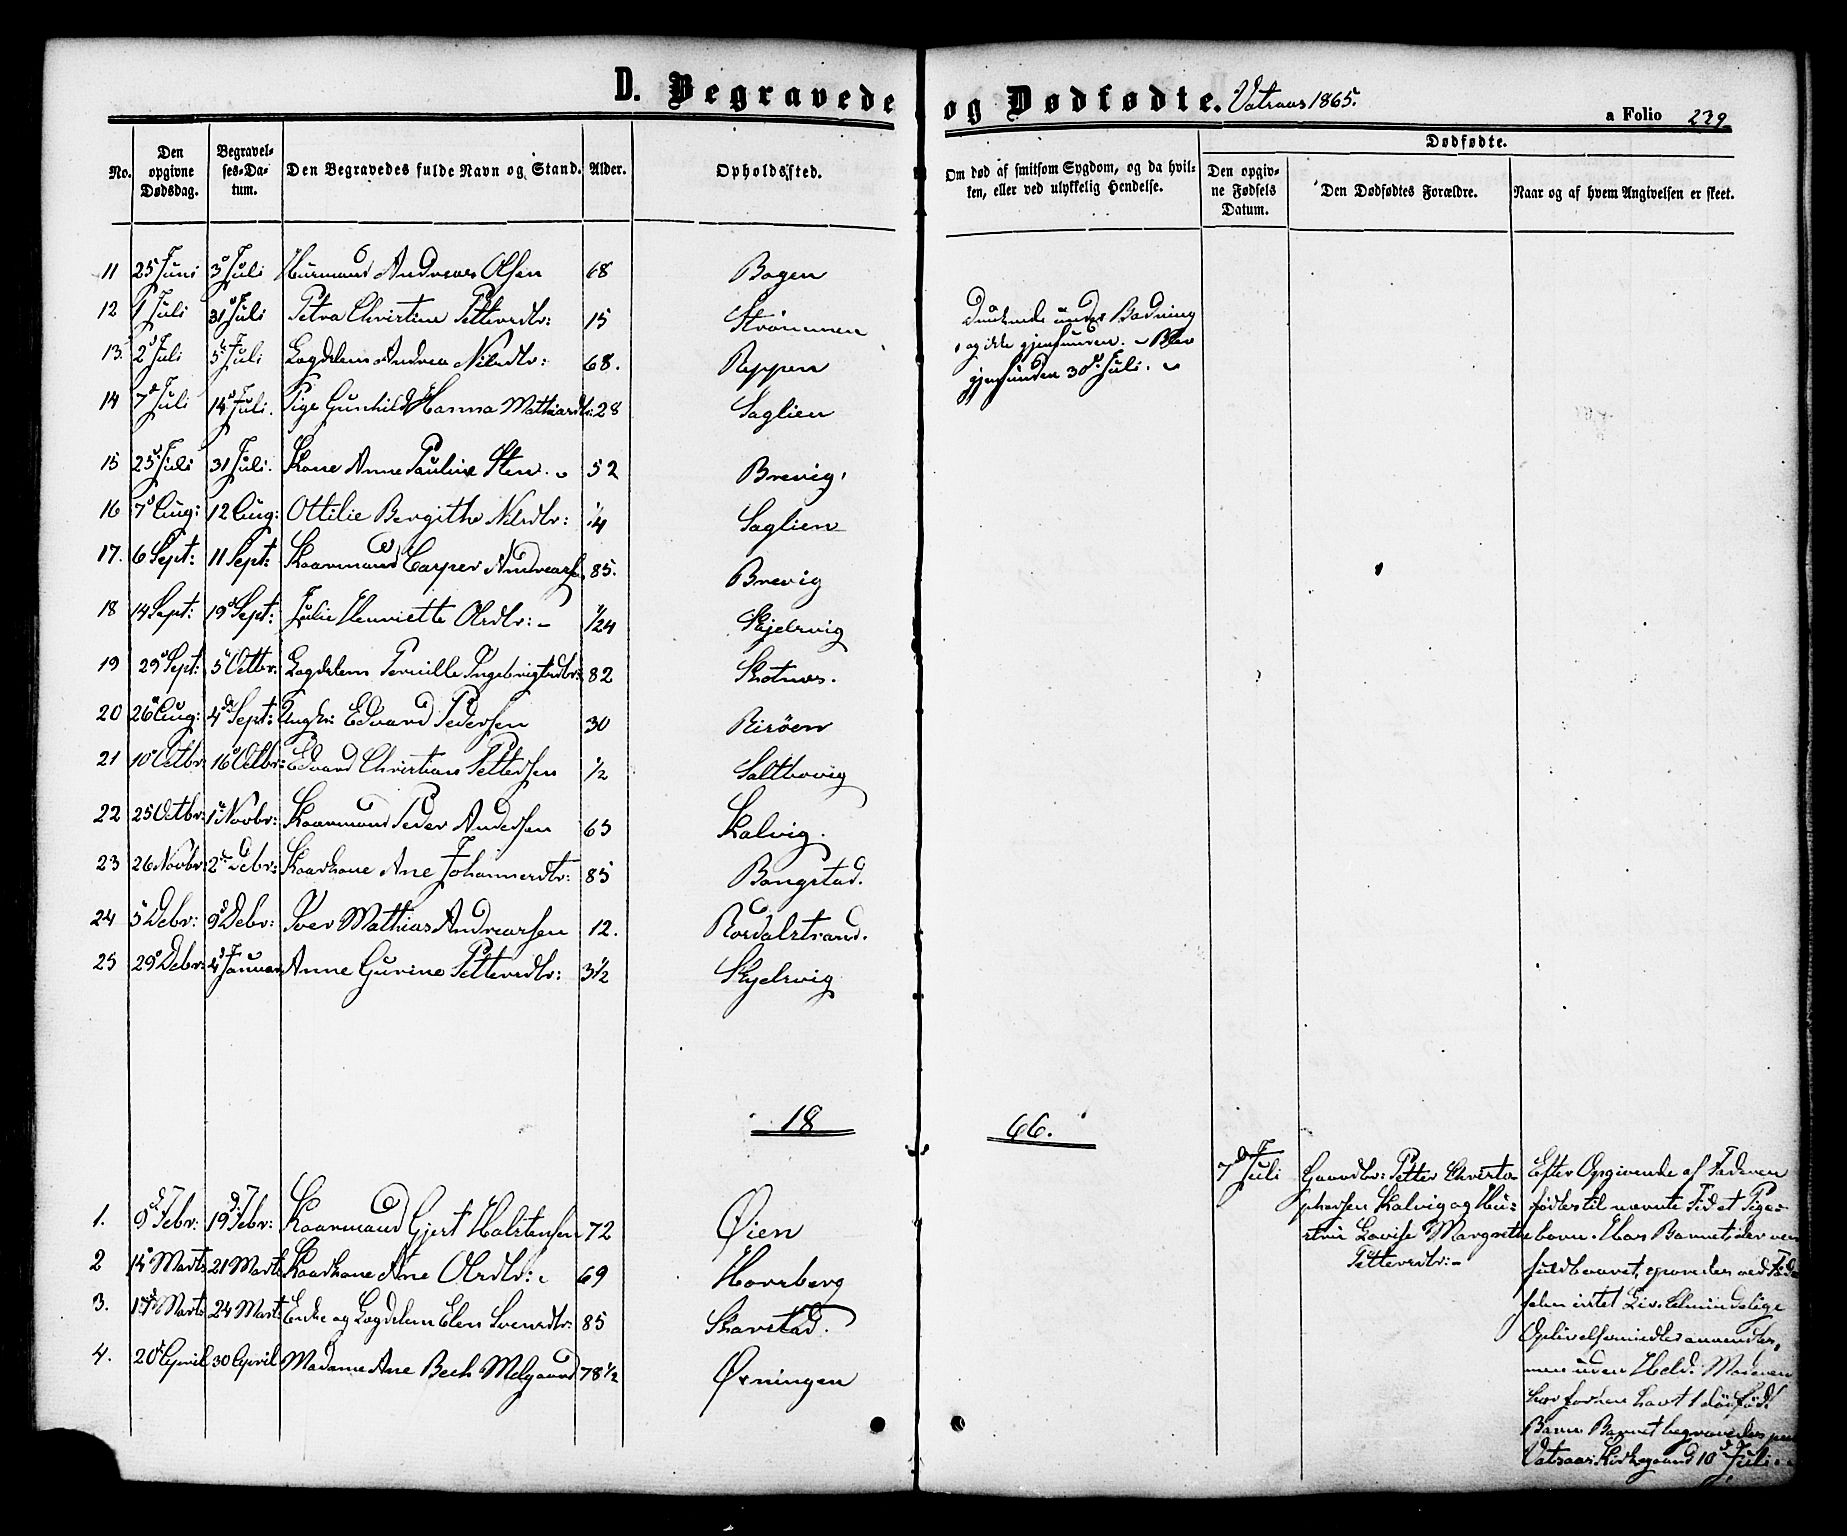 D. Begravede
No. Den opgivne Dødsdag. Begravelses-Datum. Den Begravedes fulde Navn og Stand. Alder. Opholdssted.
11 25 Juni 3 Juli Huusmand Andreas Olsen 68 Bogen
12 1 Juli 31 Juli Petra Christine Pettersdtr: 15 Strømmen
13. 2 Juli 5 Juli Lægdslem Andrea Nilsdtr: 68. Reppen
14 7 Juli 14 Juli. Pige Gunhild Hanna Mathiasdtr: 28 Saglien
15 25 Juli 31 Juli. Kone Anne Pauline Sten. 52 Brevig
16 7 Aug: 12 Aug: Ottilie Bergithe Nilsdtr: 1/4 Saglien
17. 6 Sept: 11 Sept: Kaarmand Casper Andreass. 85. Brevig
18 14 Sept: 19 Sept: Julie Henriette Olsdtr: 1/24 Skjelvig
19 29 Sept: 5 Octbr: Lægdslem Pernille Ingebrigtsdtr: 82 Skotnes.
20 26 Aug: 4 Sept: Ungkr: Edvard Pedersen 30 Risöen
21 10 Octbr: 16 Octbr: Edvard Christian Pettersen 1/2 Saltbovig
22 25 Octbr: 1 Novbr: Kaarmand Peder Andersen 65 Kalvig.
23 26 Novbr: 2 Debr: Kaarkone Ane Johannesdtr: 85 Bangstad.
24 5 Debr: 9 Debr: Iver Mathias Andreassen 12. Rosdalstrand.
25 29 Debr: 4 Januar Anne Gurine Pettersdtr: 3 1/2 Skjelvig
18
1. 9 Febr: 19 Febr: Kaarmand Gjert Halstensen 72 Øien
2 14 Marts 21 Marts Kaarkone Ane Olsdtr: 69 Hovsberg
3. 17 Marts 24 Marts Enke og Lægdslem Elen Svensdtr: 85 Skavstad.
4. 20 April 30 April Madame Ane Bech Melgaard 78 1/2 Ørningen
og Dødfødte. Vatraas 1865.
a Folio 229
Dødfødte.
Om død af smitsom Sygdom, og da hvilken, eller ved ulykkelig Hendelse. Den opgivne Fødsels Datum. Den Dødfødtes Forældre. Naar og af hvem Angivelsen er skeet.
Druknede under Badning
og ikke gjenfunden. Blev
gjenfunden 30 Juli.
66.
7 Juli
Gaardbr: Petter Christo-
phersen Kalvig og Hu-
stru Lovise Margrethe
Pettersdtr:
Efter Opgivende af Faderen
fødtes til nævnte Tid et Pige-
barn. Hos Barnet, der var
fuldbaaret, sporedes ved Fød-
selen intet Liv. Almindelige
Oplivelsesmidler anvendtes,
men uden Held. Moderen
har forhen havt 1 dødfødt
Barn. Barnet begravedes paa
Vatraas Kirkegaard 10 Juli.